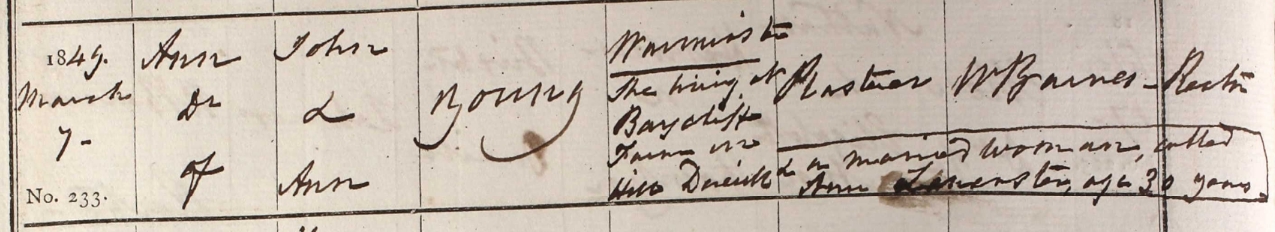 1849.
March
7-
No. 233.
Ann
Dr
of
John
&
Ann
Young
Warminster
She living at
Baycliff
Farm in
Hill Deverill
Plasterer
W Barnes - Rector
& a married woman, called
Ann Lancaster, age 30 years.